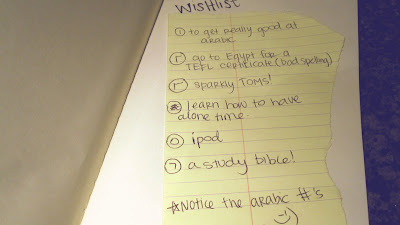 Wishlist
١ to get really good at
arabic
٢ go to Egypt for a
TEFL certificate (bad spelling)
٣ sparkly TOMS!
learn how to have
alone time.
٥ ipod
٦ a study bible!
*Notice the arabic #'s
=)